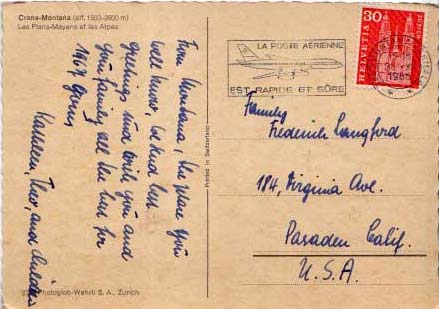 Crans-Montana (alt. 1500-2600 m)
Les Plans-Mayens et les Alpes
From Montana, the place you
well know, we send best
greetings and wish you and
your family all the best for
1967
Kathleen, Theo, and children
Photoglob-Wehrli S. A., Zürich
Printed in Switzerland
LA POSTE AÉRIENNE
EST RAPIDE ET SÛRE
30
HELVETIA
Family
Frederick Langford
184, Virginia Ave.
Pasaden Calif.
U.S.A.